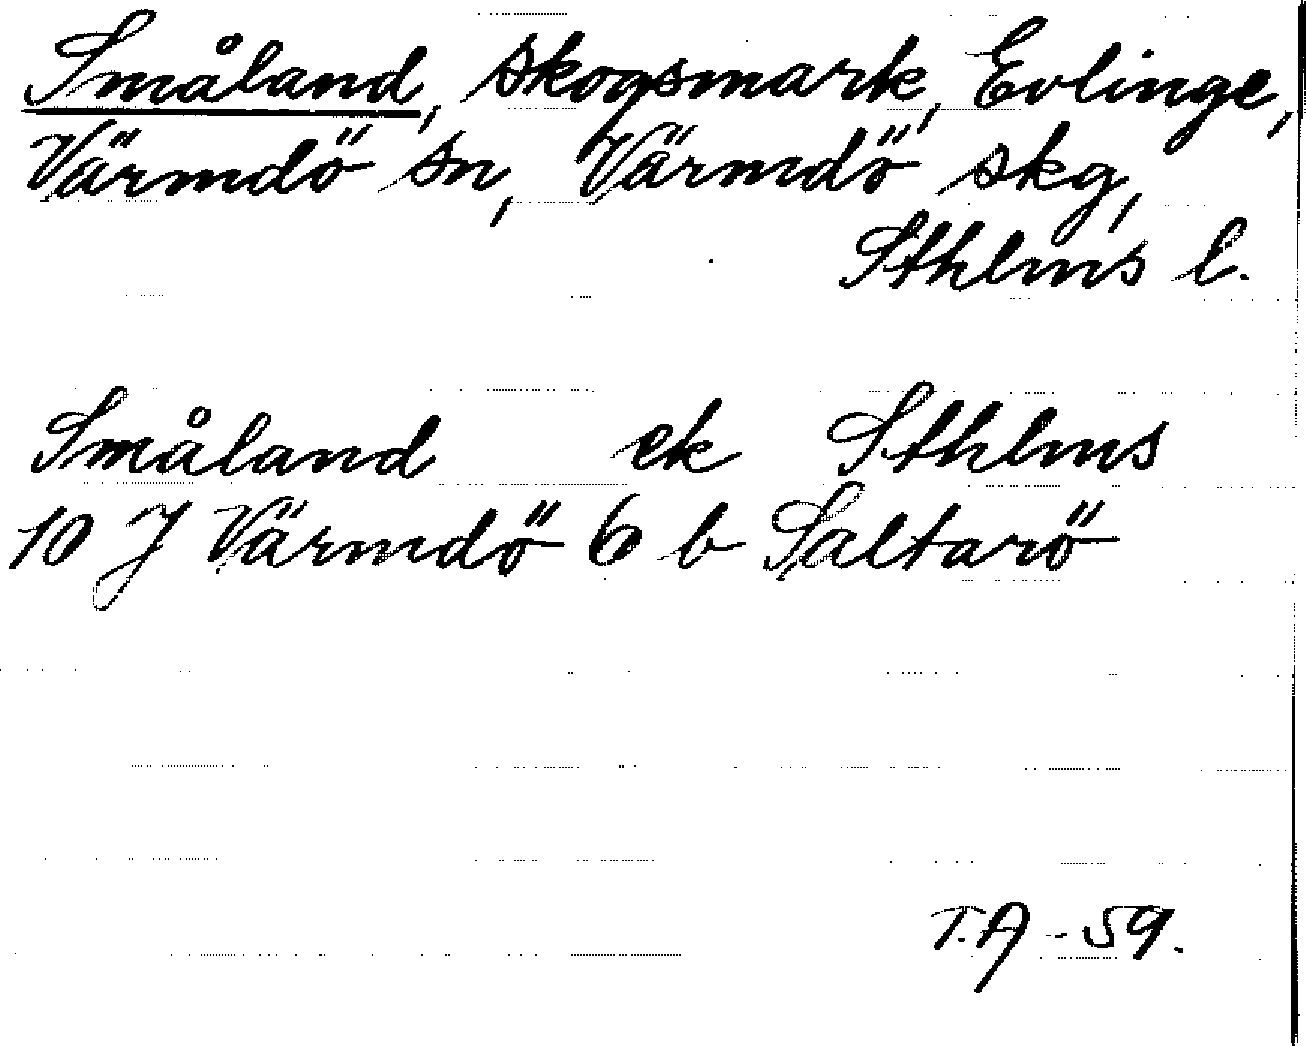 Småland, skogsmark, Evlinge,
Värmdö sn, Värmdö skg,
Sthlms l.
Småland ek Sthlms
10 J Värmdö 6 b Saltarö
T.A -59.